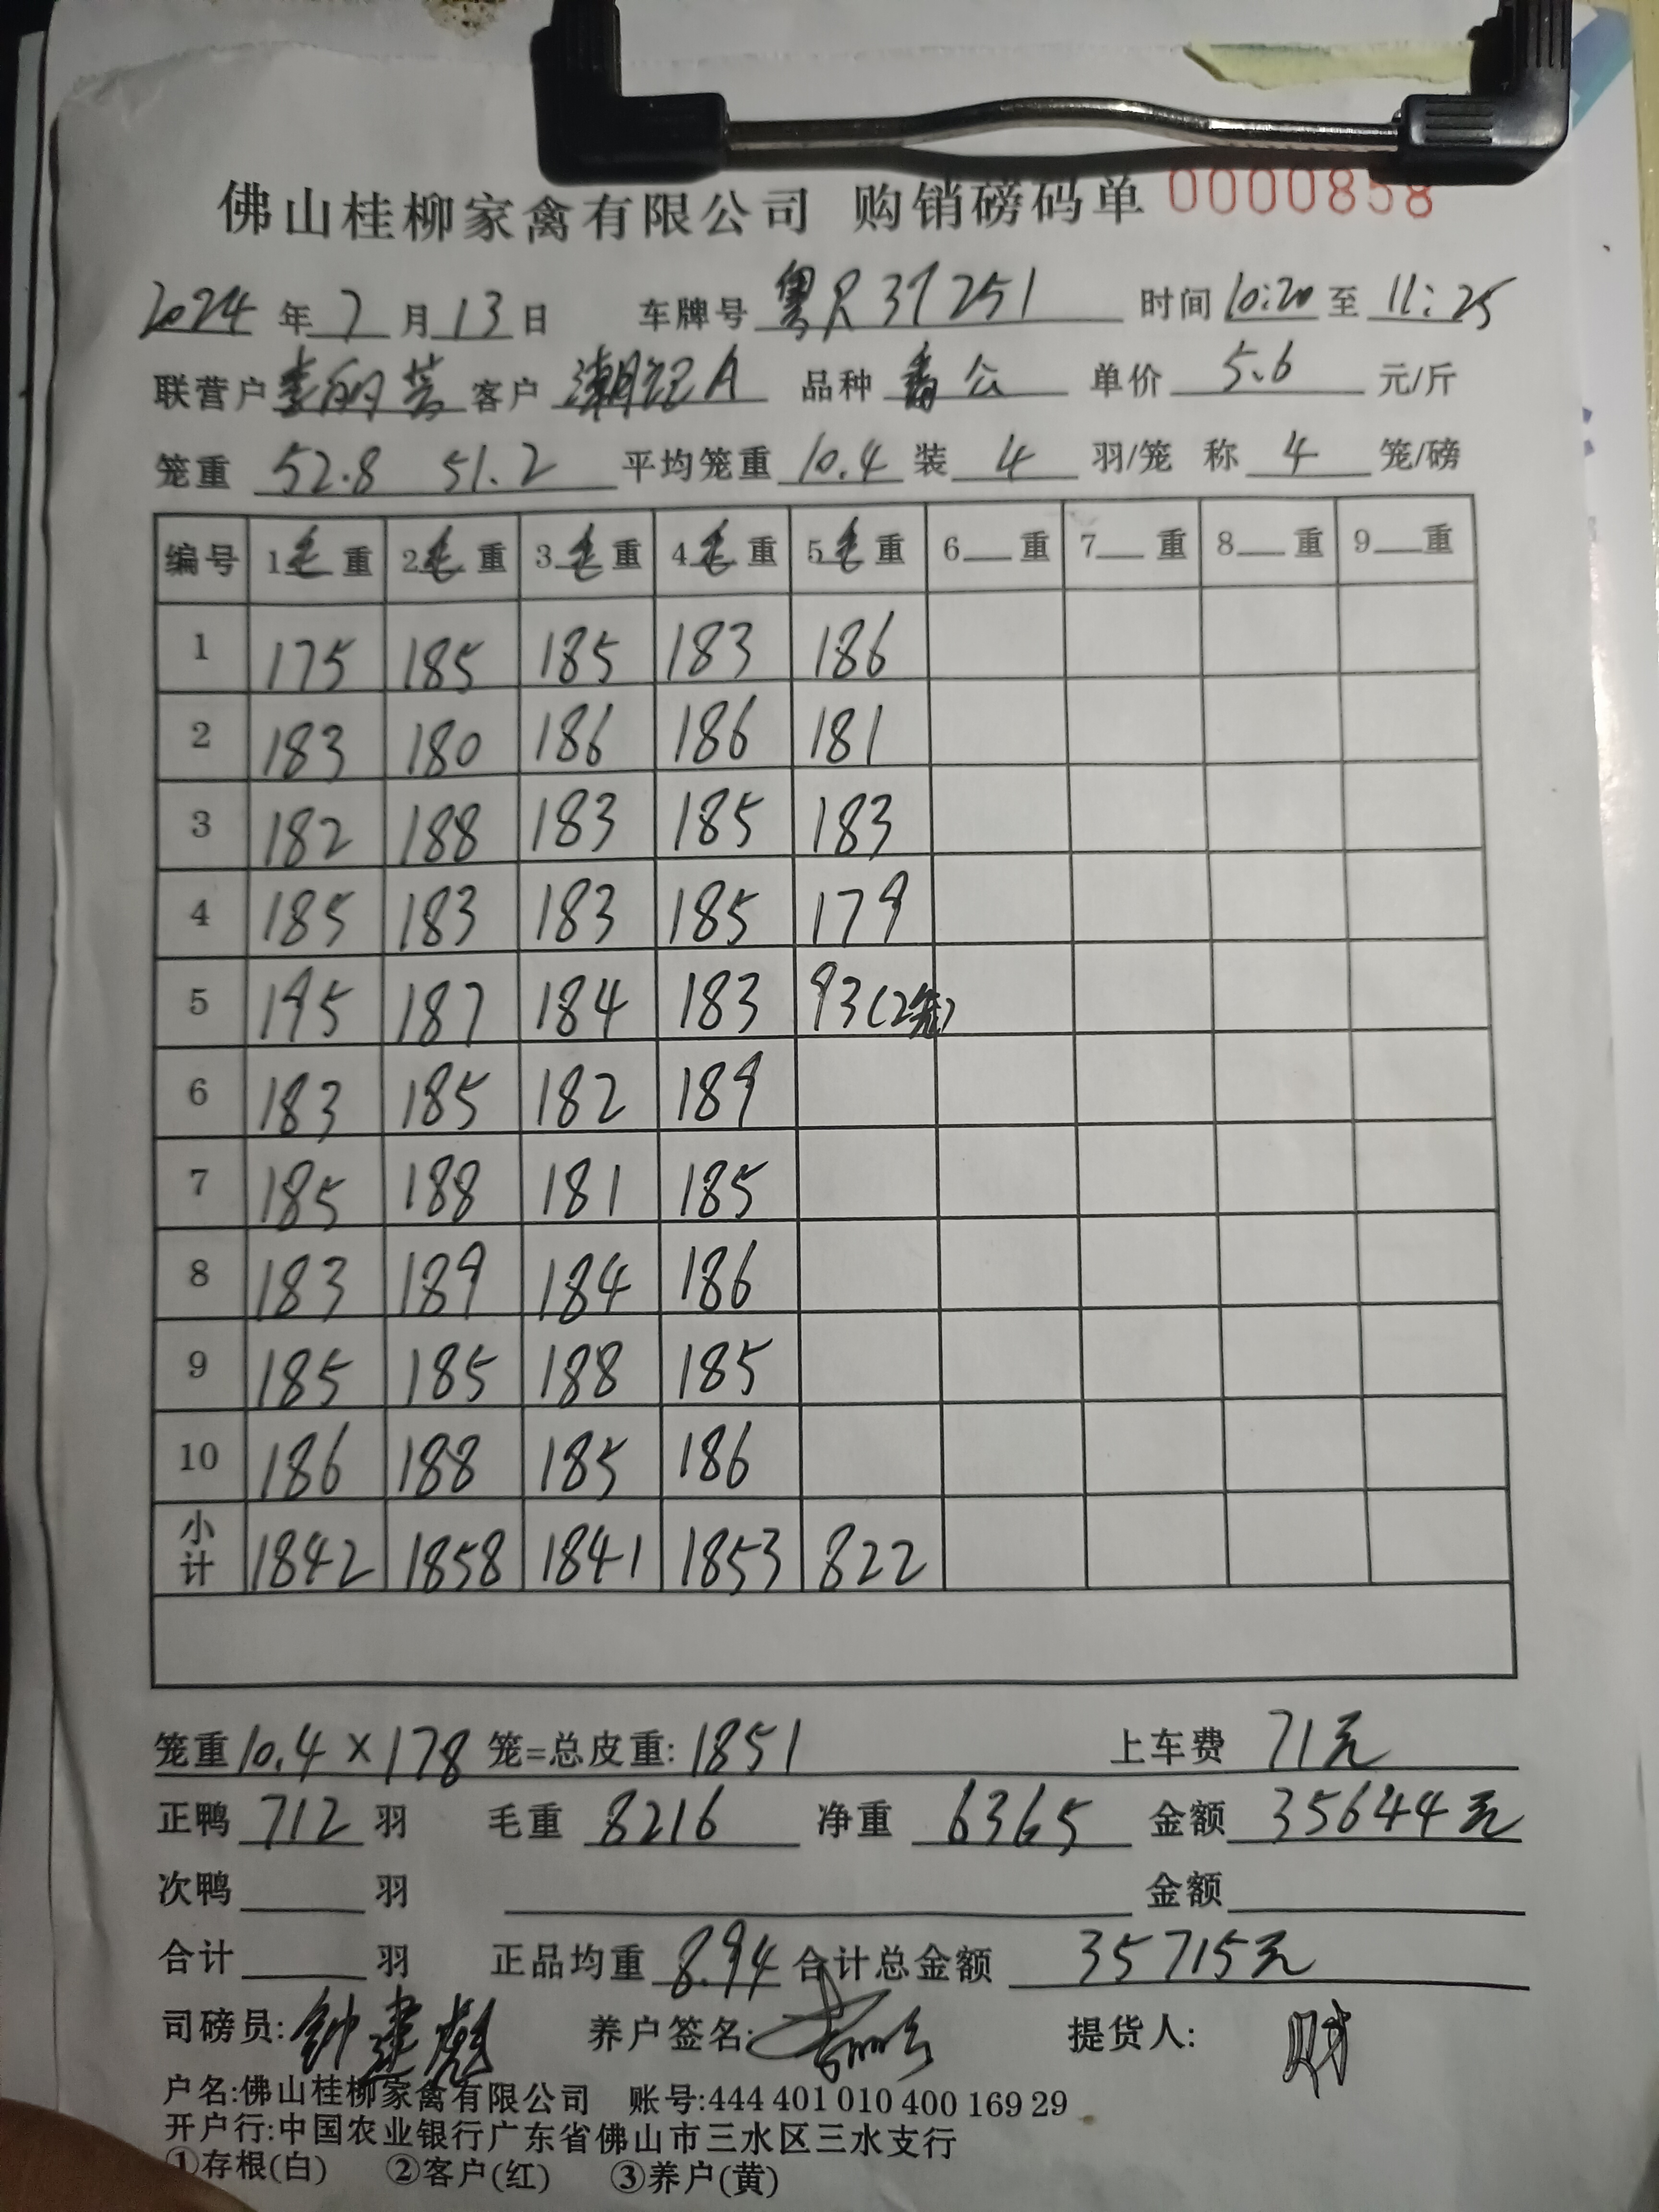 佛山桂柳家禽有限公司 购销磅码单 0000858
2024 年 7 月 13 日 车牌号 粤R37251 时间 10:20 至 11:25
联营户 李的芳 客户 潮记A 品种 番公 单价 5.6 元/斤
笼重 52.8 51.2 平均笼重 10.4 装 4 羽/笼 称 4 笼/磅
编号 1毛重 2毛重 3毛重 4毛重 5毛重 6 重 7 重 8 重 9 重
1 175 185 185 183 186
2 183 180 186 186 181
3 182 188 183 185 183
4 185 183 183 185 179
5 195 187 184 183 93(2笼)
6 183 185 182 189
7 185 188 181 185
8 183 189 184 186
9 185 185 188 185
10 186 188 185 186
小计 1842 1858 1841 1853 822
笼重 10.4 × 178 笼=总皮重: 1851 上车费 71元
正鸭 712 羽 毛重 8216 净重 6365 金额 35644元
次鸭 羽 金额
合计 羽 正品均重 8.94 合计总金额 35715元
司磅员: 钟建彪 养户签名: 提货人: 财
户名:佛山桂柳家禽有限公司 账号:444 401 010 400 169 29
开户行:中国农业银行广东省佛山市三水区三水支行
①存根(白) ②客户(红) ③养户(黄)